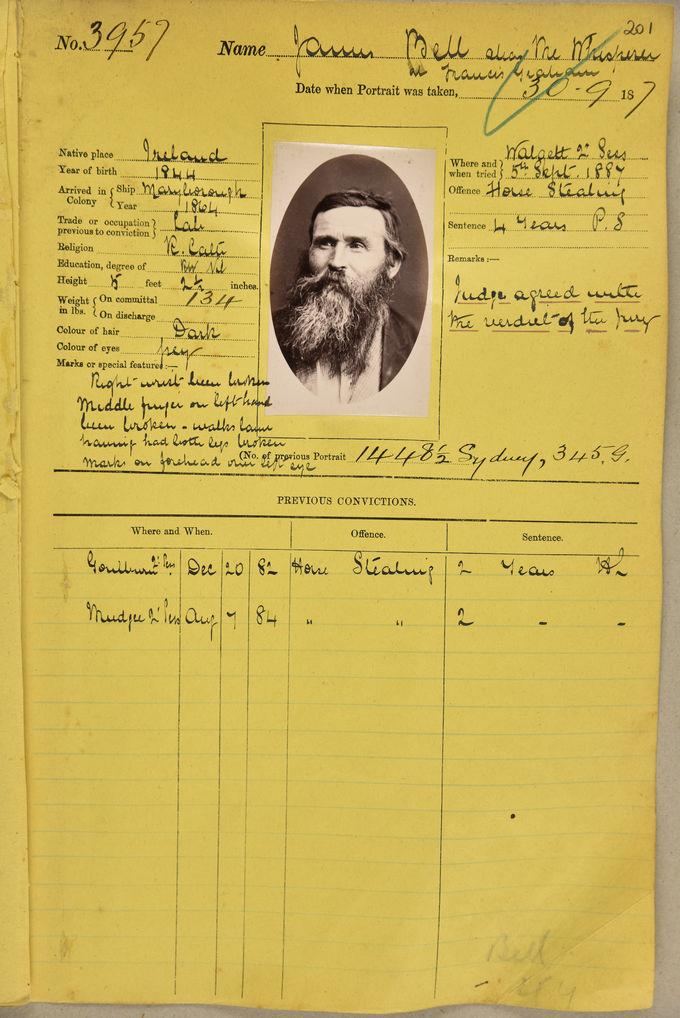 201
No. 3957 Name James Bell alias The Whisperer
al Francis Graham
Date when Portrait was taken, 30-9 187
Native place Ireland
Year of birth 1844
Arrived in Colony { Ship Maryborough
Year 1864
Trade or occupation previous to conviction } Lab
Religion R. Cath
Education, degree of RW
Height 5 feet 2½ inches.
Weight in lbs. { On committal 134
On discharge
Colour of hair Dark
Colour of eyes Grey
Marks or special features:—
Right wrist been broken
Middle finger on left hand
been broken - walks lame
having had both legs broken
marks on forehead over left eye
Where and when tried } Walgett 2r Sess
5th Sept. 1887
Offence Horse Stealing
Sentence 4 Years P.S
Remarks:—
Judge agreed with
the verdict of the jury
(No. of previous Portrait 1448½ Sydney, 345. G.
PREVIOUS CONVICTIONS.
Where and When. Offence. Sentence.
Goulburn Dec 20 82 Horse Stealing 2 Years HL
Mudgee Aug 7 84 " " 2 - -
Bell